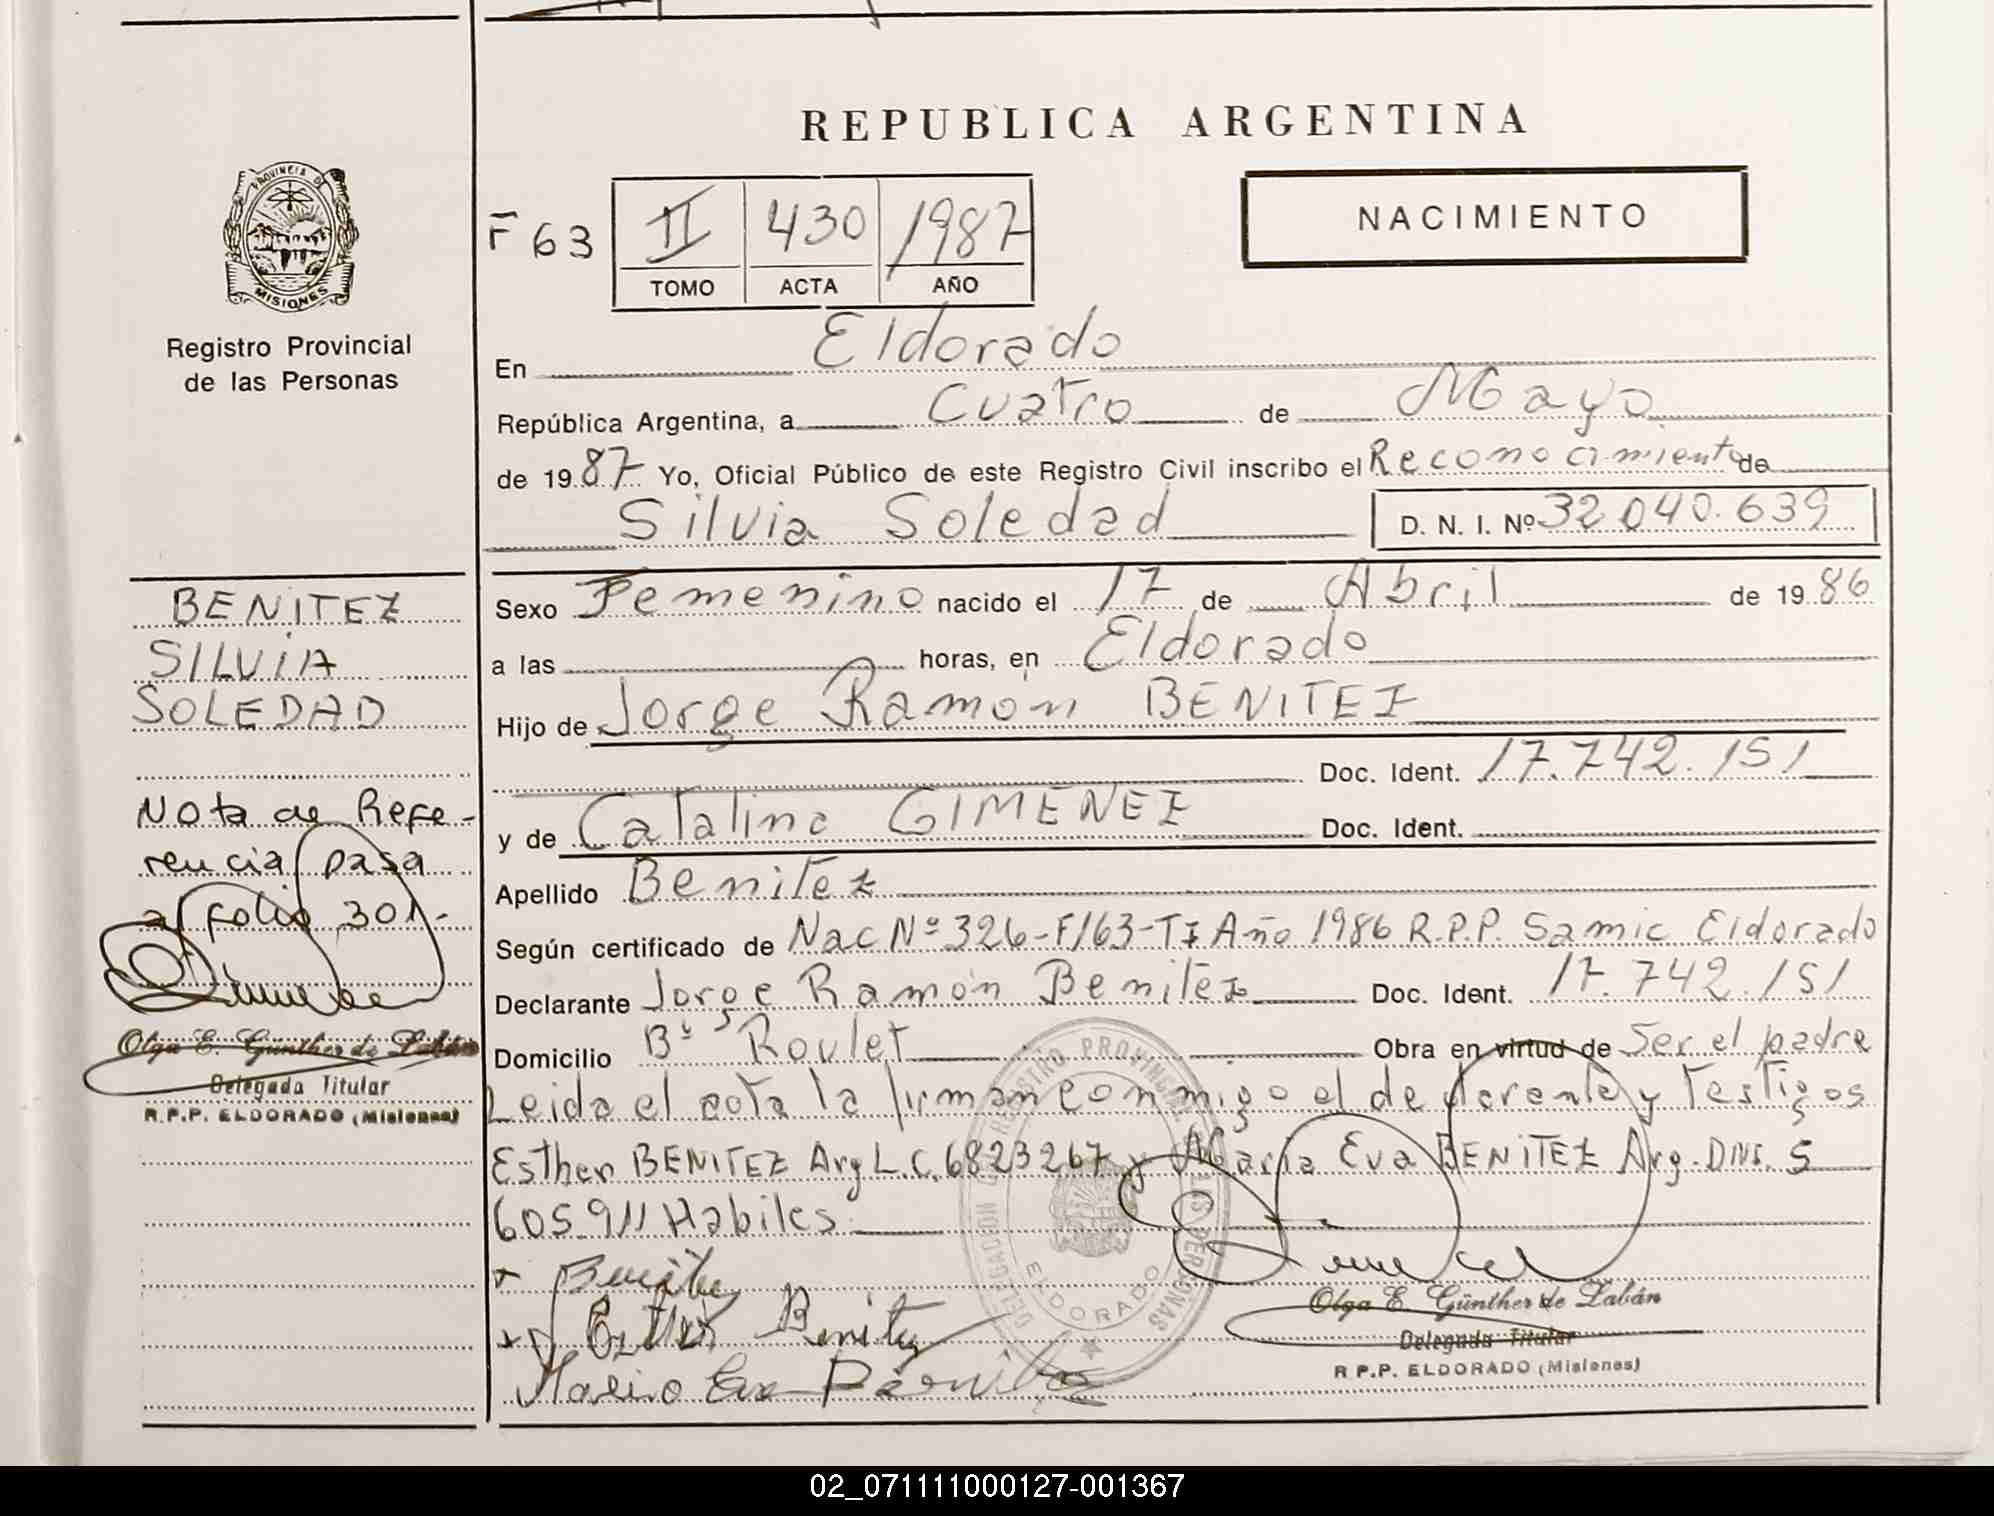 REPUBLICA ARGENTINA
PROVINCIA D
MISIONES
Registro Provincial
de las Personas
F 63
II 430 1987
TOMO ACTA AÑO
NACIMIENTO
En Eldorado
República Argentina, a Cuatro de Mayo
de 1987 Yo, Oficial Público de este Registro Civil inscribo el Reconocimiento de
Silvia Soledad D. N. I. Nº 32.040.639
BENITEZ
SILVIA
SOLEDAD
Nota de Refe-
rencia pasa
al folio 301.-
Olga E. Günther de Labán
Delegada Titular
R.P.P. ELDORADO (Misiones)
Sexo Femenino nacido el 17 de Abril de 1986
a las horas, en Eldorado
Hijo de Jorge Ramón BENITEZ
Doc. Ident. 17.742.151
y de Catalina GIMENEZ Doc. Ident.
Apellido Benitez
Según certificado de Nac Nº 326-F/63-TI Año 1986 R.P.P. Samic Eldorado
Declarante Jorge Ramón Benitez Doc. Ident. 17.742.151
Domicilio Bº Roulet Obra en virtud de Ser el padre
Leida el acta la firman conmigo el declarante y testigos
Esther BENITEZ Arg L.C. 6823267 y María Eva BENITEZ Arg. DNI. 5
605.911 Habiles.
DELEGACION REGISTRO PROVINCIAL DE LAS PERSONAS
ELDORADO
Benitez
Esther Benitez
Maria Eva Benitez
Olga E. Günther de Labán
Delegada Titular
R P.P. ELDORADO (Misiones)
02_071111000127-001367